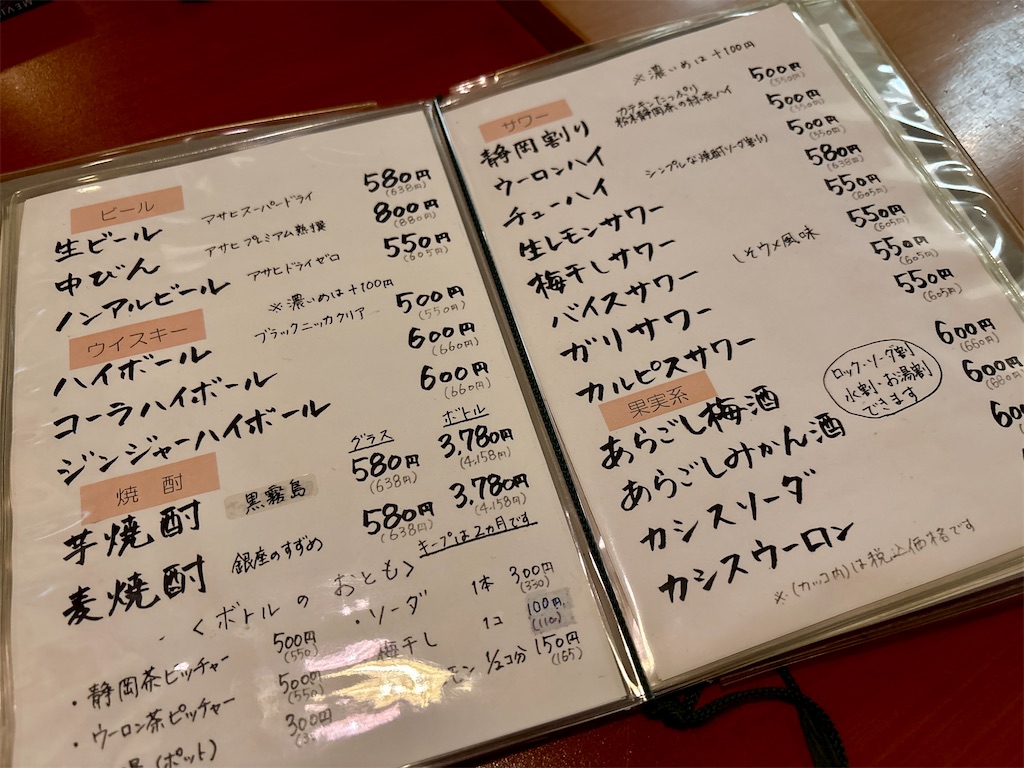 ビール
生ビール アサヒスーパードライ 580円
(638円)
中びん アサヒプレミアム熟撰 800円
(880円)
ノンアルビール アサヒドライゼロ 550円
(605円)
ウイスキー ※濃いめは+100円
ハイボール ブラックニッカクリア 500円
(550円)
コーラハイボール 600円
(660円)
ジンジャーハイボール 600円
(660円)
焼 酎 グラス ボトル
芋焼酎 黒霧島 580円 3,780円
(638円) (4,158円)
麦焼酎 銀座のすずめ 580円 3,780円
(638円) (4,158円)
キープは2ヵ月です
<ボトルのおとも>
・静岡茶ピッチャー 500円
(550)
・ウーロン茶ピッチャー 500円
(550)
(ポット) 300円
・ソーダ 1本 300円
(330)
梅干し 1コ 100円
(110)
モン 1/2コ分 150円
(165)
サワー ※濃いめは+100円
静岡割り カテキンたっぷり
粉末静岡茶の緑茶ハイ 500円
(550円)
ウーロンハイ 500円
(550円)
チューハイ シンプルな焼酎ソーダ割り 500円
(550円)
生レモンサワー 580円
(638円)
梅干しサワー 550円
(605円)
バイスサワー しそウメ風味 550円
(605円)
ガリサワー 550円
(605円)
カルピスサワー 550円
(605円)
果実系
あらごし梅酒 600円
(660円)
あらごしみかん酒 600円
(660円)
ロック・ソーダ割
水割・お湯割
できます
カシスソーダ 60
カシスウーロン
※(カッコ内)は税込価格です